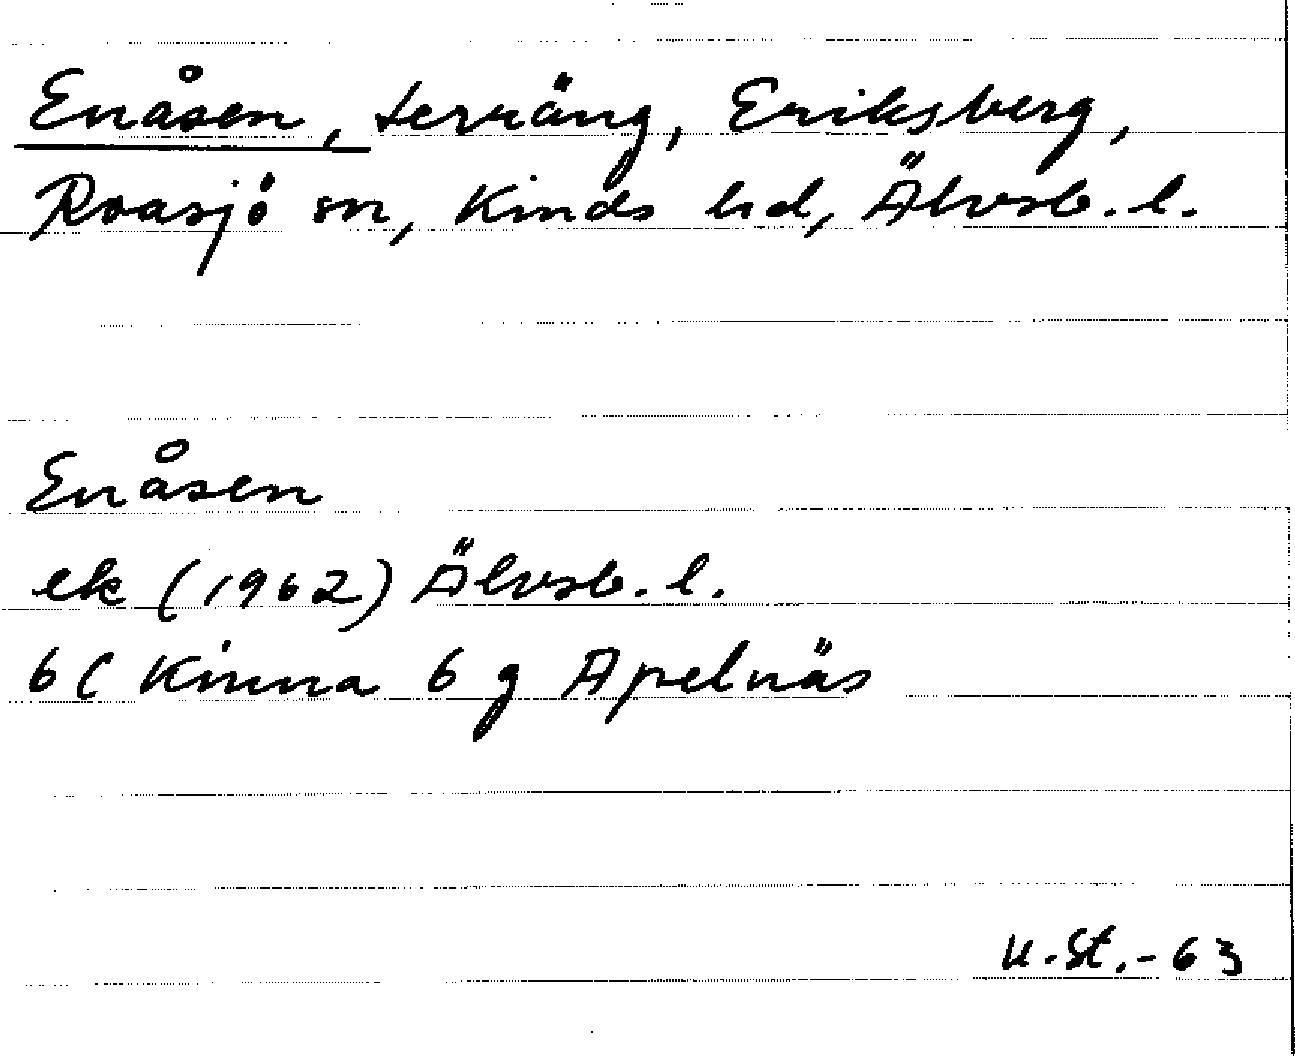 Enåsen, terräng, Eriksberg,
Roasjö sn, Kinds hd, Älvsb. l.
Enåsen
ek (1962) Älvsb. l.
6C Kinna 6 g Apelnäs
U. St. - 63